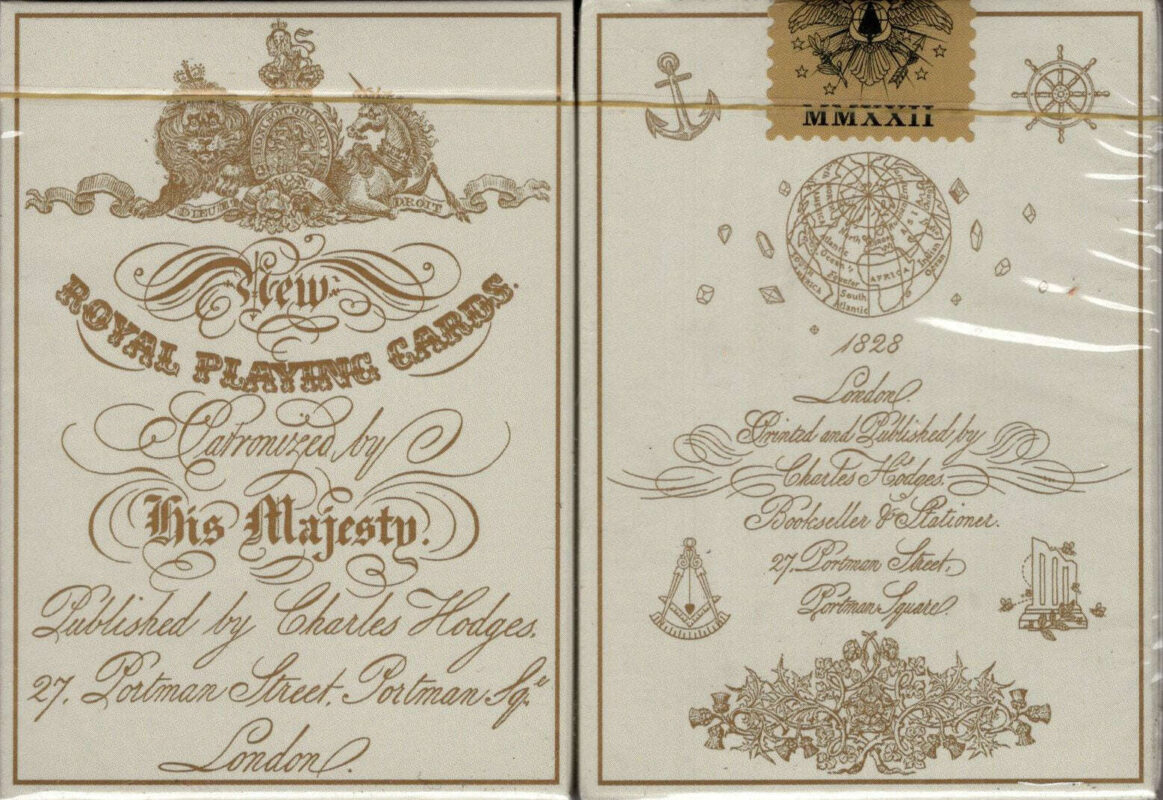 DIEU ET
DROIT
New
ROYAL PLAYING CARDS.
Patronized by
His Majesty.
Published by Charles Hodges.
27, Portman Street, Portman Sqr.
London.
MMXXII
North
Atlantic
Ocean
Equator
AFRICA
South
Atlantic
Indian
Ocean
1828
London.
Printed and Published by
Charles Hodges.
Bookseller & Stationer.
27, Portman Street,
Portman Square.